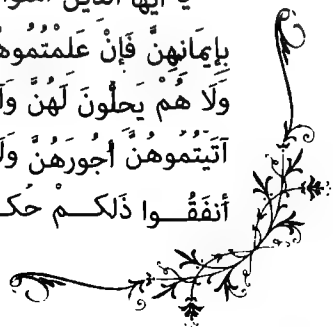 يَا أَيُّهَا الَّذِينَ
بِإِيمَانِهِنَّ فَإِنْ عَلِمْتُمُوهُ
وَلَا هُمْ يَحِلُّونَ لَهُنَّ وَ
آتَيْتُمُوهُنَّ أُجُورَهُنَّ وَلَ
أَنفَقُـــوا ذَلِكُـــمْ حُكـ